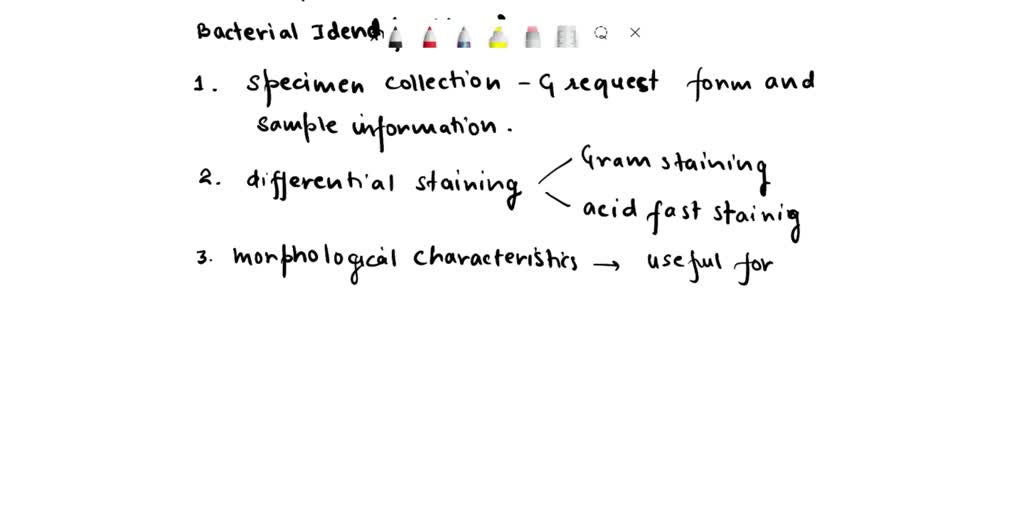 Bacterial Iden
1. specimen collection - G request form and
sample information.
2. differential staining
Gram staining
acid fast stainig
3. morphological characteristics → useful for